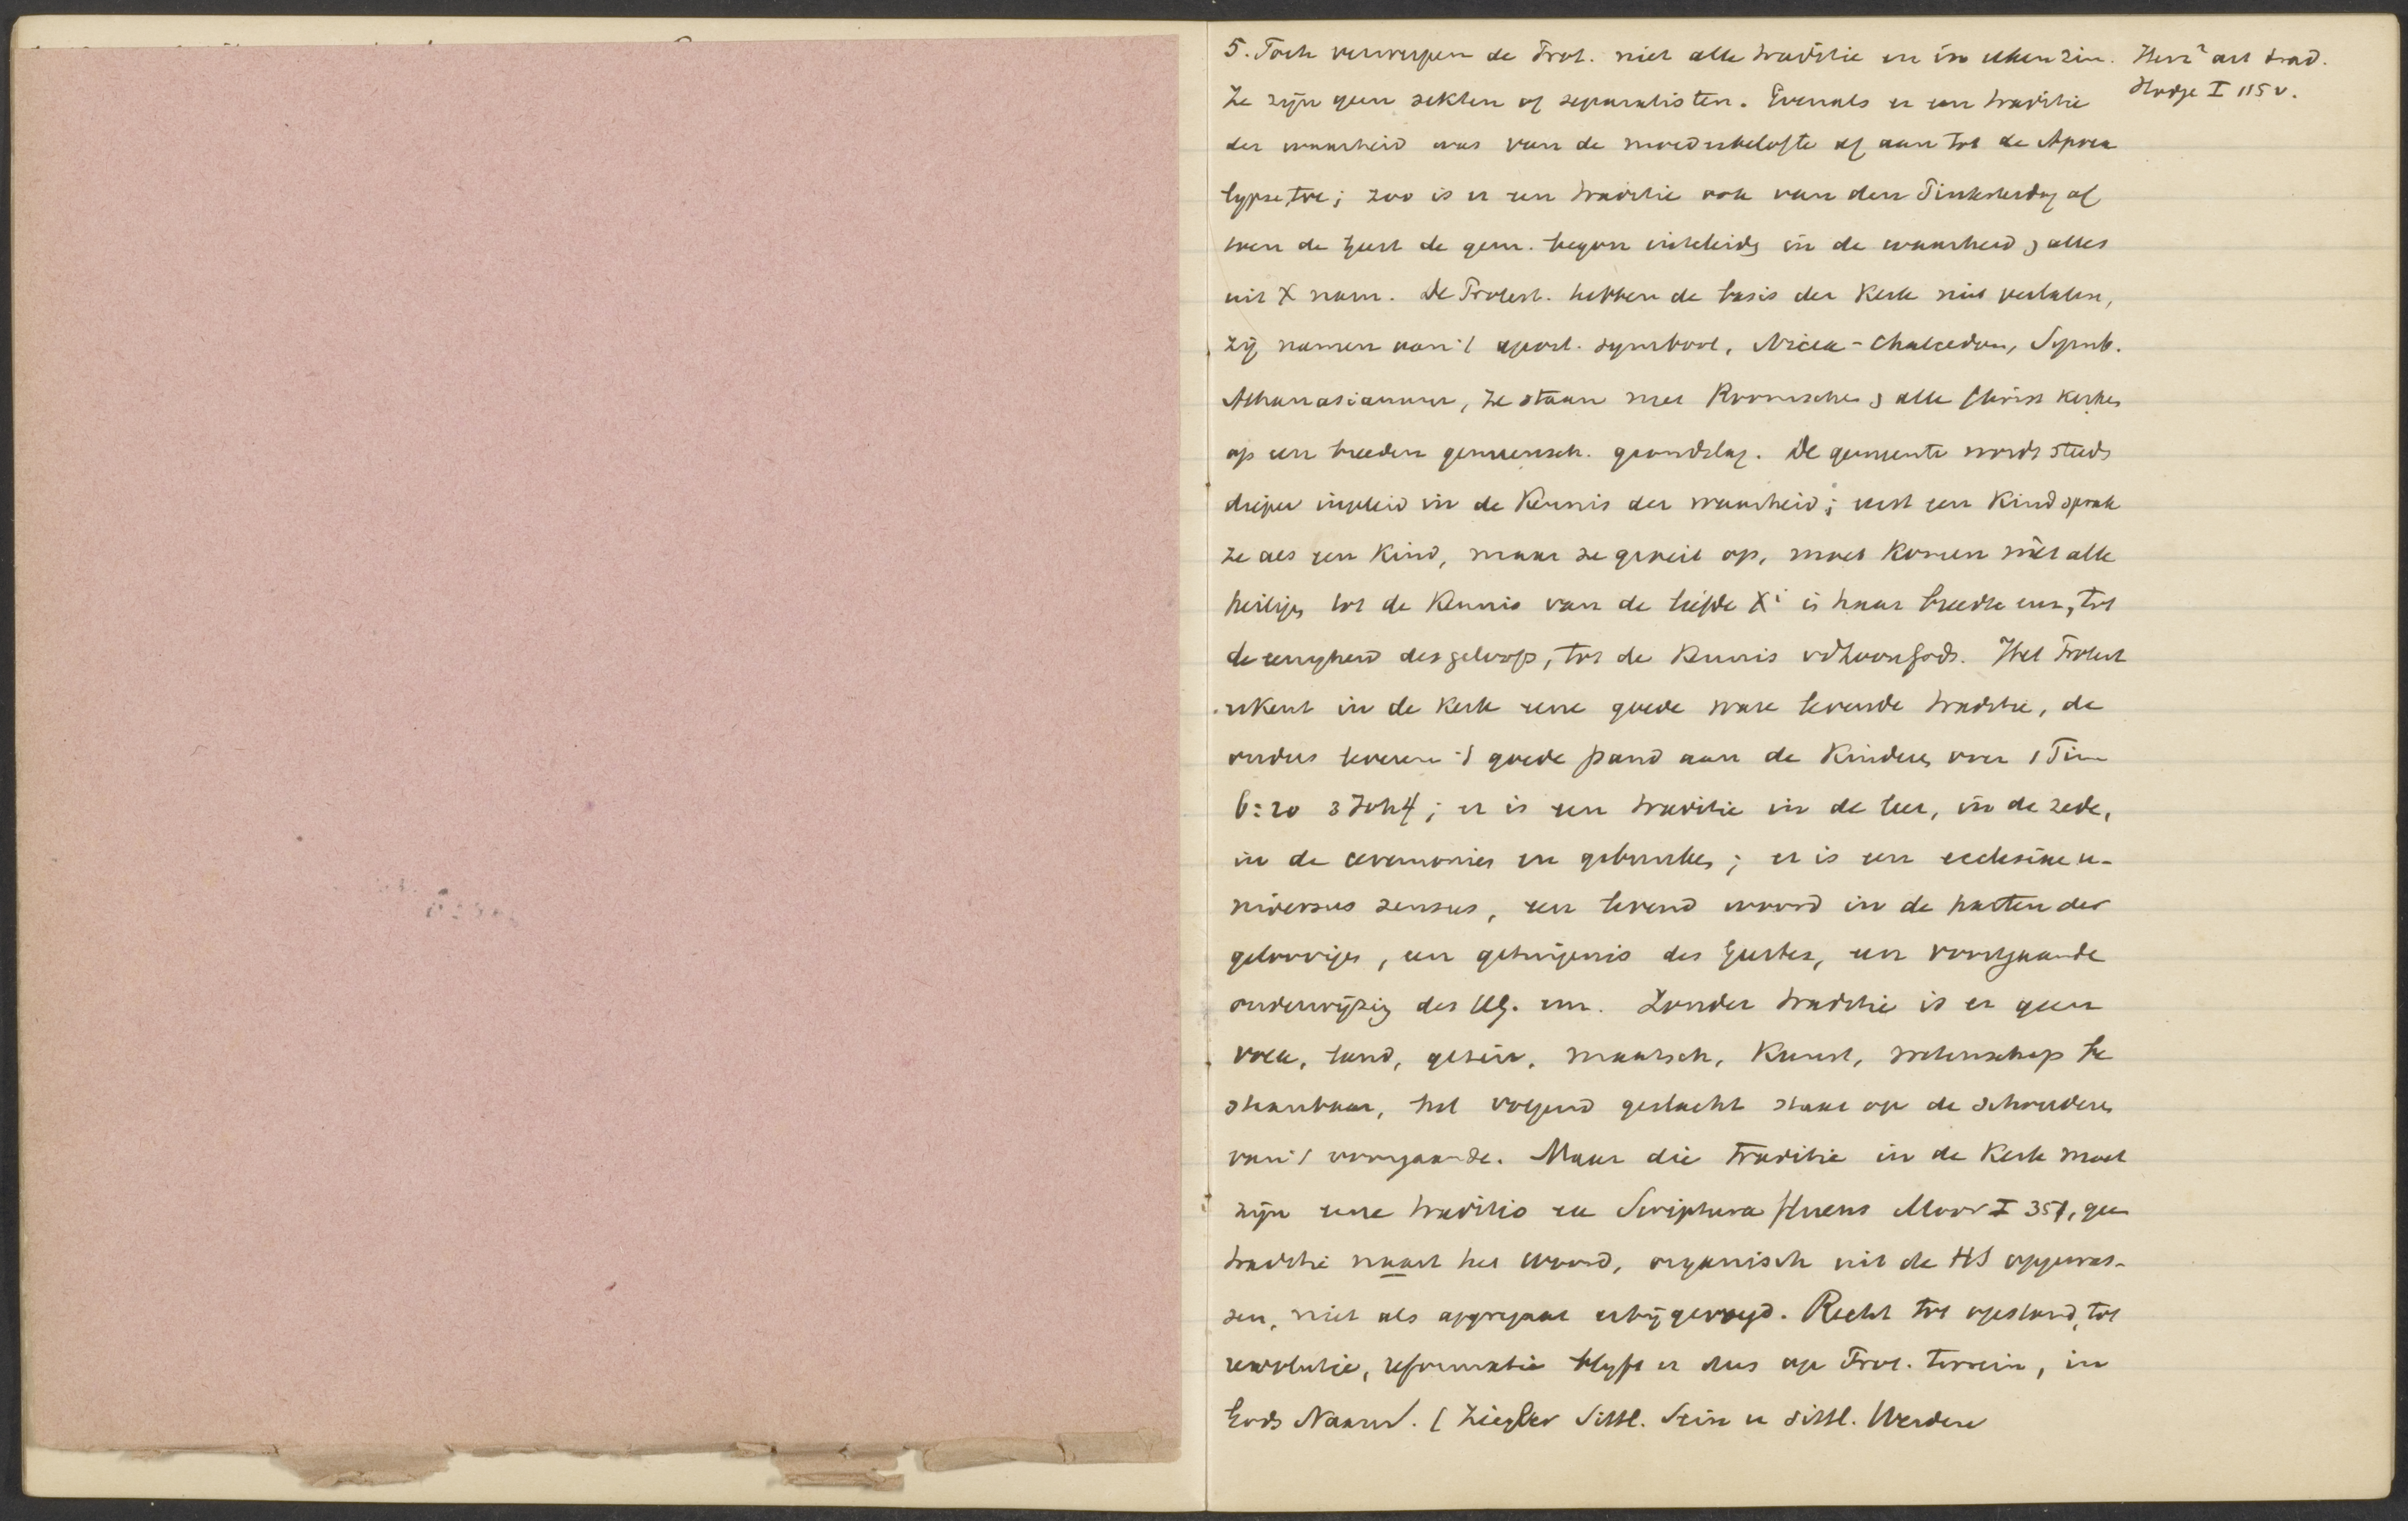 5. Toch verwerpen de Prot. niet alle traditie en in elken zin.
Ze zijn geen sekten of separatisten. Evenals er een traditie
der waarheid was van de moederbelofte af aan tot de Apoca
lypse toe; zoo is er een traditie ook van den Pinksterdag af
toen de Geest de gem. begon inteleiden in de waarheid, alles
uit X nam. De Protest. hebben de basis der Kerk niet verlaten,
zij namen aan 't apost. symbool, Nicea-Chalcedon, Symb.
Athanasianum, ze staan met Roomschen, alle Christ Kerken
op een breeden gemeensch. grondslag. De gemeente wordt steeds
dieper ingeleid in de Kennis der waarheid; eerst een Kind sprak
ze als een Kind, maar ze groeit op, moet komen mèt alle
heiligen tot de Kennis van de liefde Xi in haar breedte enz, tot
de eenigheid des geloofs, tot de Kennis vd Zoon Gods. Het Protest
erkent in de Kerk eene goede ware levende traditie, de
ouders leveren 't goede pand aan de Kinderen over 1 Tim
6:20 3 Joh 4; er is een traditie in de leer, in de zede,
in de ceremonien en gebruiken; er is een ecclesiae u-
niversus sensus, een levend woord in de harten der
geloovigen, een getuigenis des Geestes, een voortgaande
onderwijzing des HG. enz. Zonder traditie is er geen
volk, land, gezin, maatsch, Kunst, wetenschap be
staanbaar, het volgend geslacht staat op de schouders
van 't voorgaande. Maar die traditie in de Kerk moet
zijn eene traditio ex Scriptura fluens Moor I 351, geen
traditie naast het Woord, organisch uit de HS opgewas-
sen, niet als aggregaat erbij gevoegd. Recht tot opstand, tot
revolutie, reformatie blijft er dus op Prot. terrein, in
Gods Naam. (Ziegler Sittl. Sein u sittl. Werden
Herz² art trad.
Hodge I 115 v.